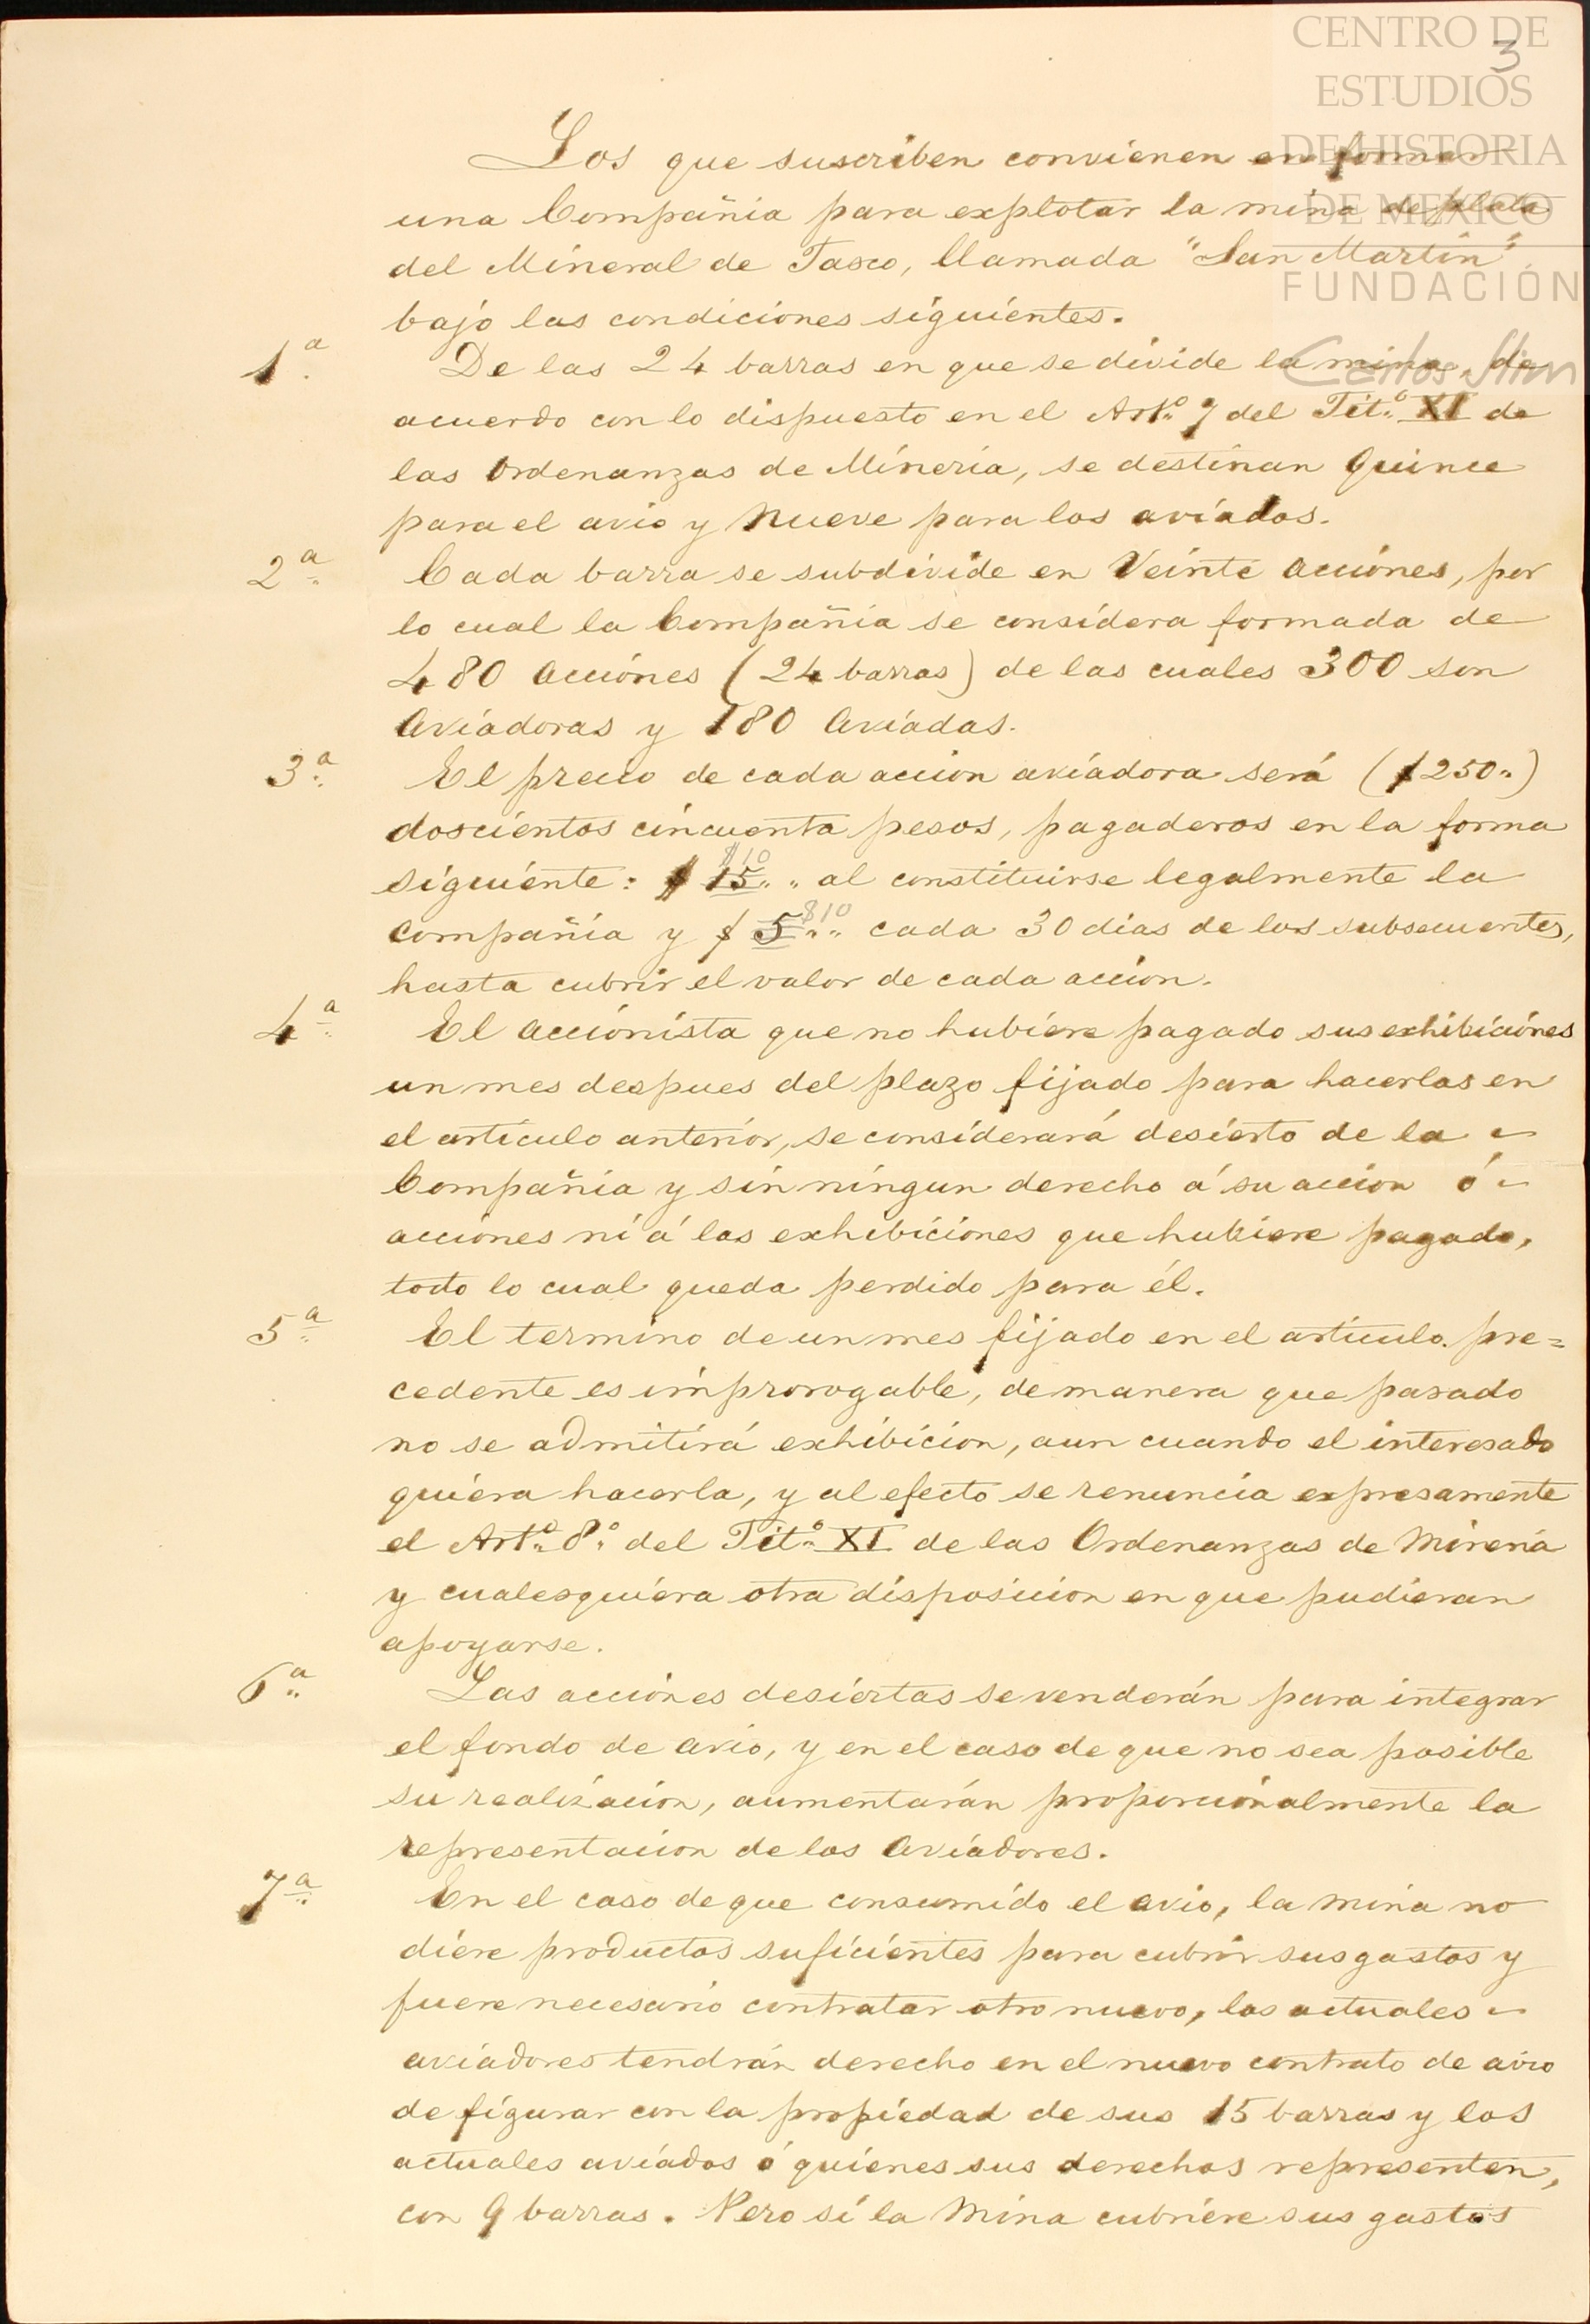 CENTRO DE
ESTUDIOS
DE HISTORIA
DE MEXICO
FUNDACIÓN
Carlos Slim
3
Los que suscriben convienen en formar
una Compañia para explotar la mina de plata
del Mineral de Tasco, llamada "San Martin"
bajo las condiciones siguientes.
1ª De las 24 barras en que se divide la mina, de
acuerdo con lo dispuesto en el Artº 7 del Titº XI de
las Ordenanzas de Mineria, se destinan Quince
para el avio y Nueve para los aviados.
2ª Cada barra se subdivide en Veinte acciones, por
lo cual la Compañia se considera formada de
480 acciones (24 barras) de las cuales 300 son
Aviadoras y 180 Aviadas.
3ª El precio de cada accion aviadora será ($250„)
doscientos cincuenta pesos, pagaderos en la forma
$10
siguiente: $ 15„ „ al constituirse legalmente la
$10
Compañia y $ 5„„ cada 30 dias de los subsecuentes,
hasta cubrir el valor de cada accion.
4ª El accionista que no hubiere pagado sus exhibiciones
un mes despues del plazo fijado para hacerlas en
el articulo anterior, se considerará desierto de la
Compañia y sin ningun derecho á su accion ó
acciones ni á las exhibiciones que hubiere pagado,
todo lo cual queda perdido para él.
5ª El termino de un mes fijado en el articulo pre=
cedente es improrogable, de manera que pasado
no se admitirá exhibicion, aun cuando el interesado
quiera hacerla, y al efecto se renuncia expresamente
el Artº 8º del Titº XI de las Ordenanzas de Mineria
y cualesquiera otra disposicion en que pudieran
apoyarse.
6ª Las acciones desiertas se venderán para integrar
el fondo de avio, y en el caso de que no sea posible
su realizacion, aumentarán proporcionalmente la
representacion de los Aviadores.
7ª En el caso de que consumido el avio, la mina no
diere productos suficientes para cubrir sus gastos y
fuere necesario contratar otro nuevo, los actuales
aviadores tendrán derecho en el nuevo contrato de avio
de figurar con la propiedad de sus 15 barras y los
actuales aviados ó quienes sus derechos representen,
con 9 barras. Pero si la Mina cubriere sus gastos